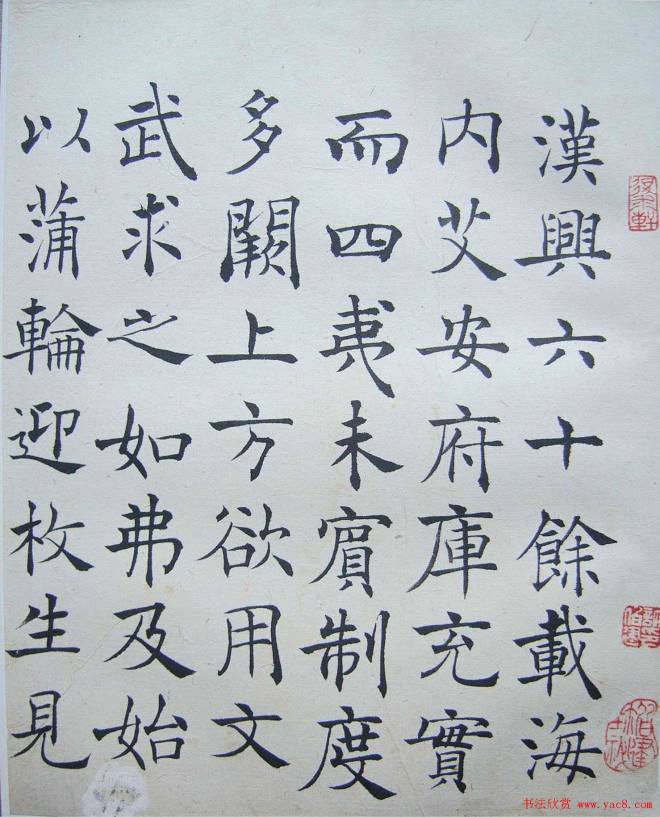 漢興六十餘載海
內艾安府庫充實
而四夷未賓制度
多闕上方欲用文
武求之如弗及始
以蒲輪迎枚生見
书法欣赏 www.yac8.com